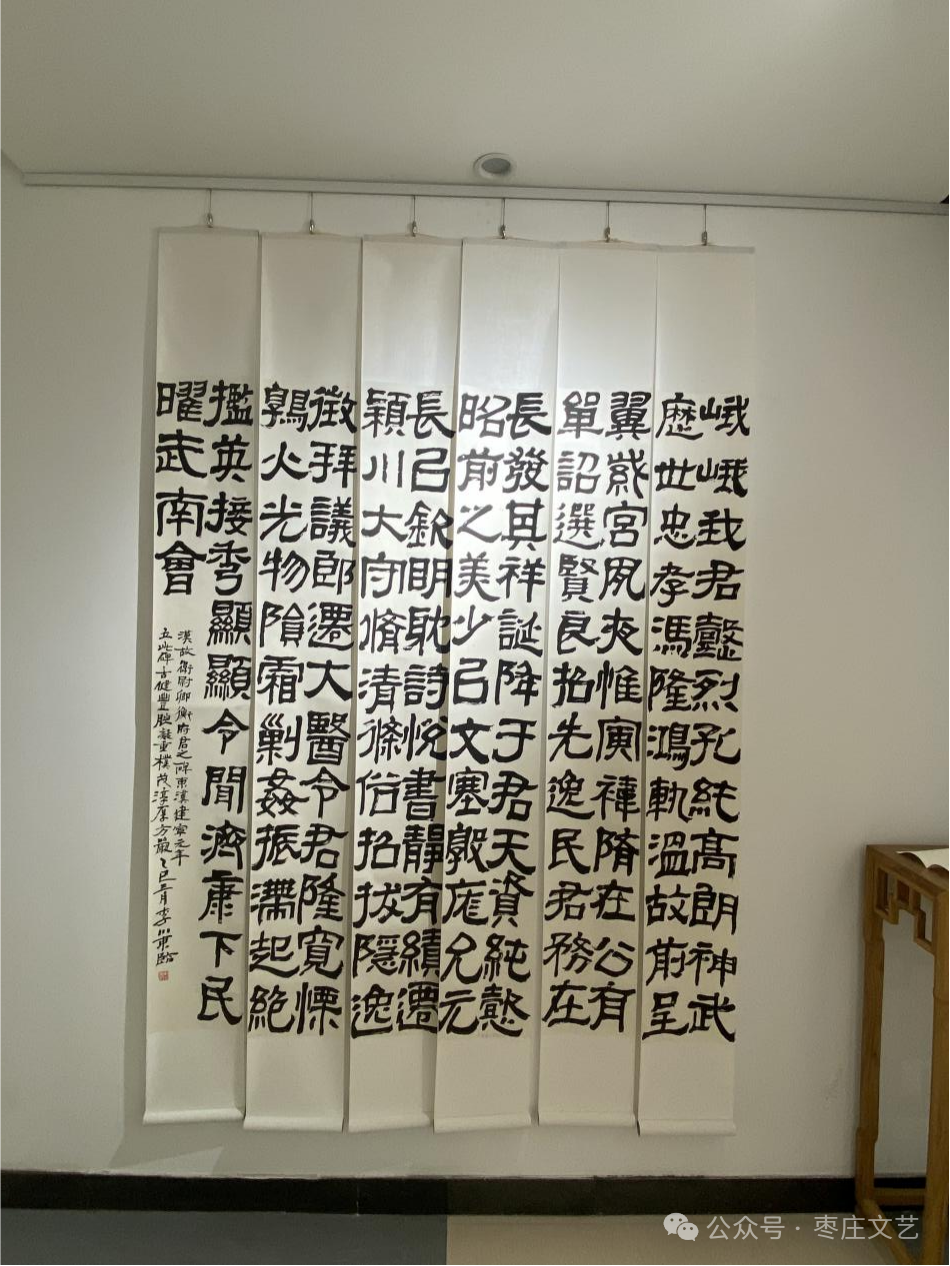 峨峨我君懿烈孔純高朗神武
歷世忠孝馮隆鴻軌溫故前呈
翼紫宮夙夜惟寅褘隋在公有
單詔選賢良招先逸民君務在
長發其祥誕降于君天資純懿
昭前之美少以文塞敦庬允元
長以欽明耽詩悅書靜有績遷
潁川大守脩清滌俗招拔隱逸
徵拜議郎遷大醫令君隆寬慄
鶉火光物隕霜剿姦振滯起絕
㩜英接秀顯顯令聞濟康下民
曜武南會
漢故衛尉卿衡府君之碑東漢建寧元年
立此碑古健豐腴凝重樸茂淳厚方嚴乙巳三月李臨
公众号·枣庄文艺